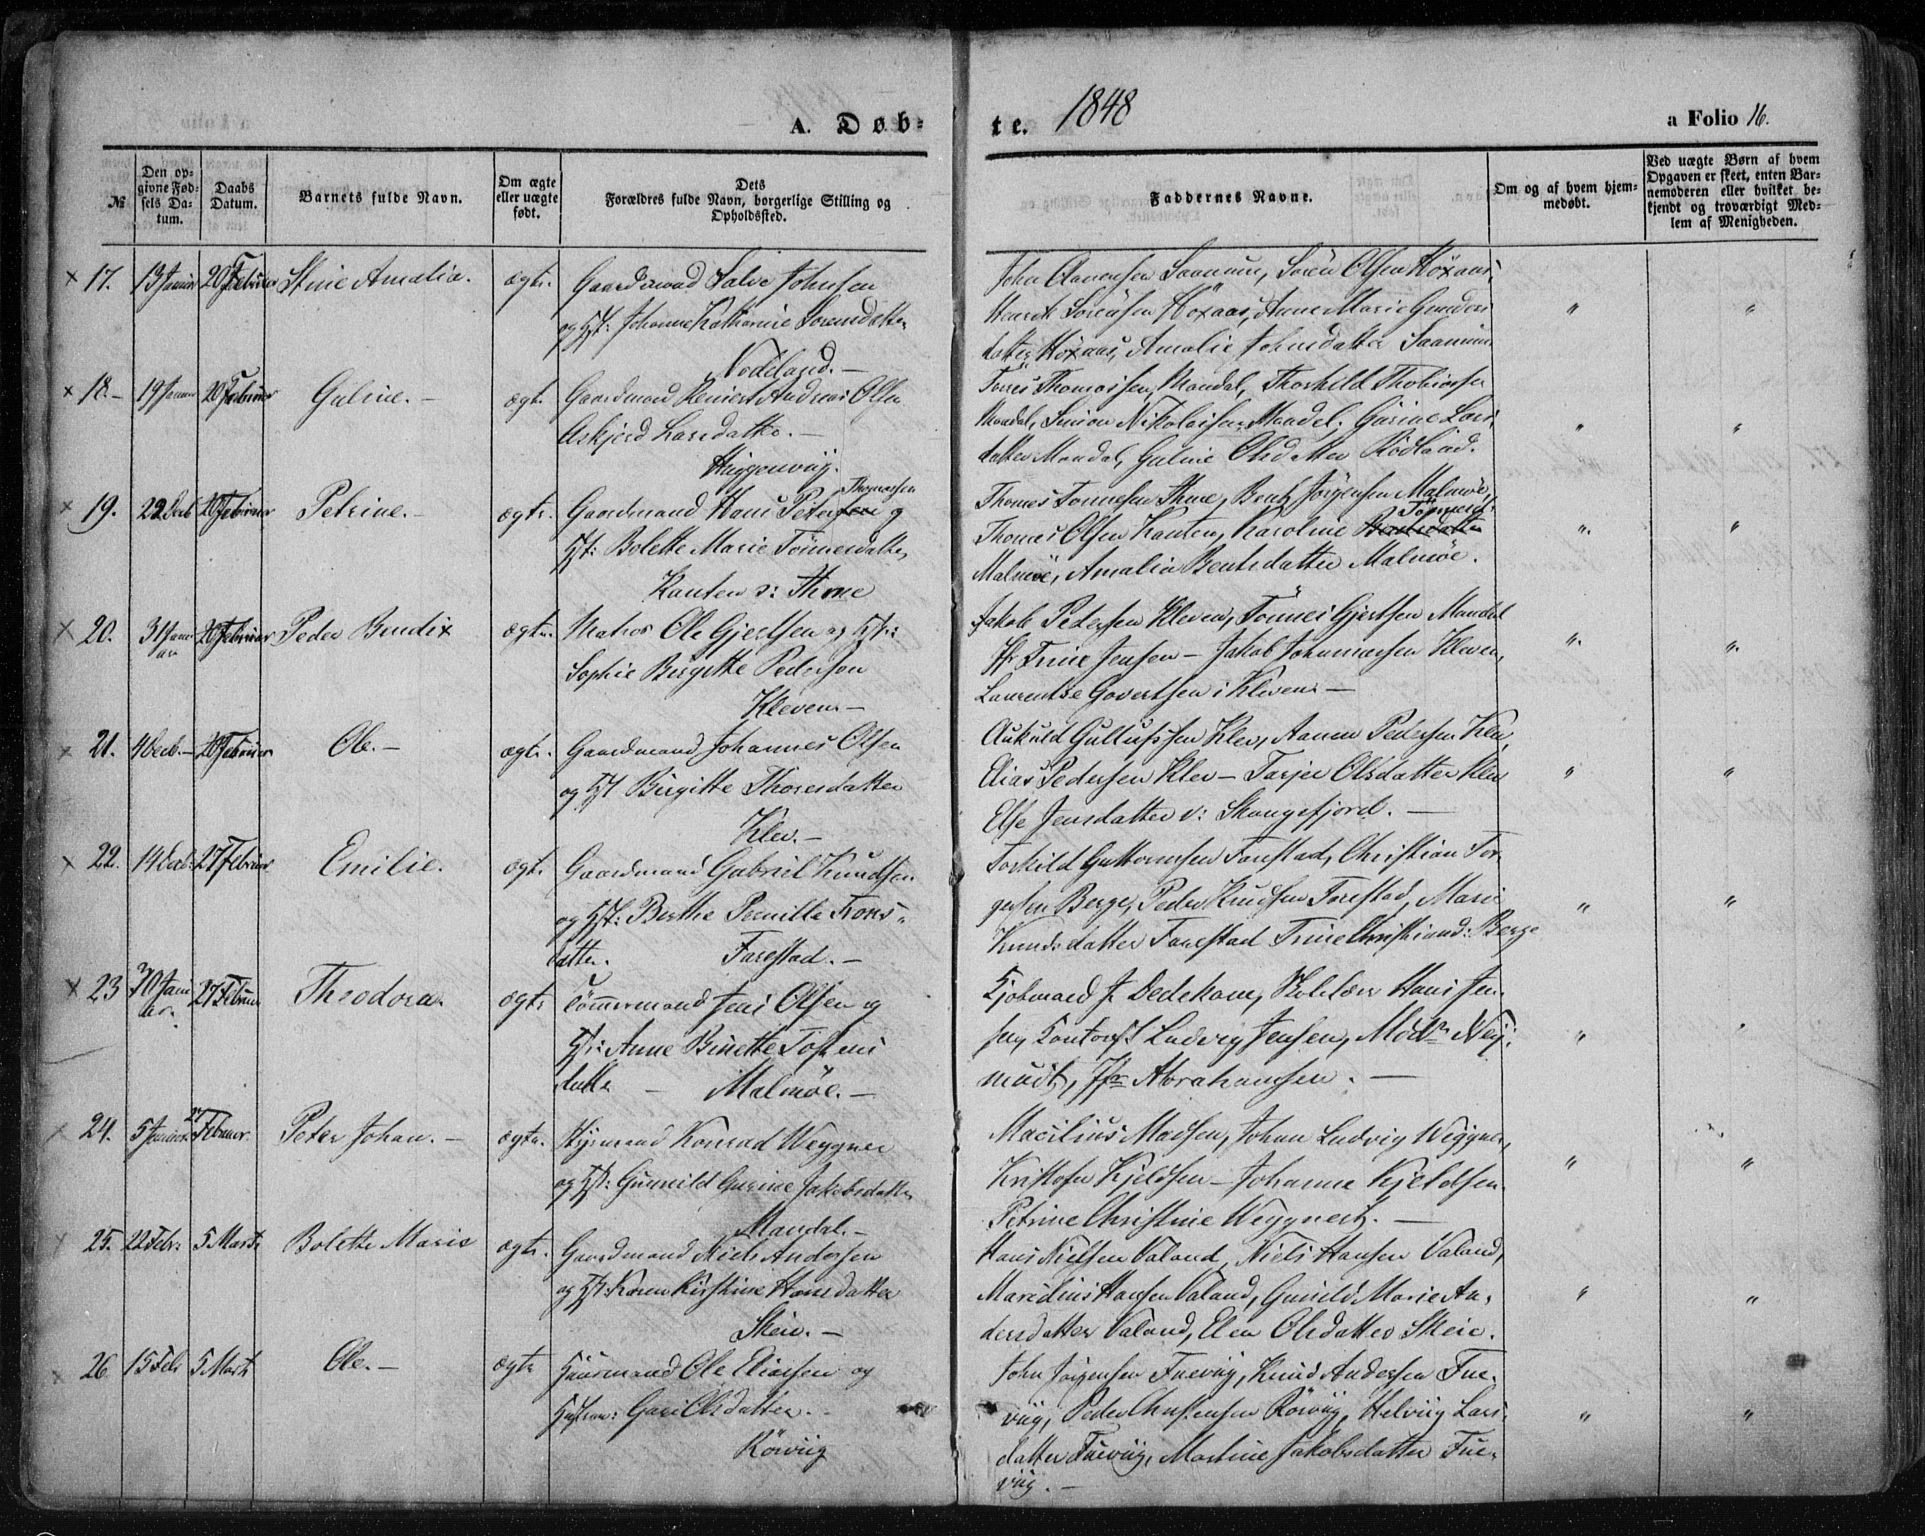 A. Døb-
te. 1848
a Folio 16.
№
Den opgivne Fødsels Datum.
Daabs Datum.
Barnets fulde Navn.
Om ægte eller uægte født.
Dets Forældres fulde Navn, borgerlige Stilling og Opholdssted.
Faddernes Navne.
Om og af hvem hjemmedøbt.
Ved uægte Børn af hvem Opgaven er skeet, enten Barnemoderen eller hvilket bekjendt og troværdigt Medlem af Menigheden.
17. 13 Januar 20 Februar Stine Amalia. ægte. Gaardmand Salve Johnsen
og Hst: Johanne Kathrine Sorensdatter
Vodeland.—
John Aanensen Saanum, Sören Olsen Höxaas,
Henrik Sörensen Höxaas, Anne Marie Gunders
datter Höxaas, Amalie Johnsdatter Saanum
" "
18.— 19 Januar 20 Februar Guline.— ægt. Gaardmand Reinert Andreas Olsen
Askjerd Larsdatter.—
Torres Thomassen Mandal, Thorkild Thobiasen
Mandal, Simon Nikolaisen Mandal, Gurine Lars
datter Mandal, Guline Olsdatter Rödland.
" "
19. 22 Decb 20 Februar Petrine.— ægte. Gaardmand Hans Petersen Thomassen og
Hst: Bolette Marie Tönnesdatter
Kanten v: Thrne
Thomas Tönnesen Thrne, Bent Jörgensen Malmöe,
Thomas Olsen Kanten, Karoline Bentsdatter Tönnesd:
Malmöe, Amalia Bentsdatter Malmöe.
" "
20. 31 Januar 20 Februar Peder Bendix ægte. Matros Ole Gjertsen og Hst:
Sophie Birgitte Pedersen
Kleven—
Jakob Pedersen Kleven, Tönnes Gjertsen Mandal
Jfr Trine Jensen — Jakob Johannesen Kleven,
Laurentse Govertsen i Kleven—
" "
21. 4 Decb.— 20 Februar Ole.— ægte. Gaardmand Johannes Olsen
og Hst Birgitte Thoresdatter
Klev.—
Aukuld Gullufssen Klev, Aanen Pedersen Klev,
Elias Pedersen Klev — Tarjer Olsdatter Klev
Else Jensdatter v: Skougsfjord.—
" "
22. 14 Decb. 27 Februar Emilie. ægt. Gaardmand Gabriel Knudsen
og Hst: Berthe Pernille Trons-
datter. Farestad.—
Torkild Guttormsen Farestad, Christian Tor-
gersen Berge, Peder Knudsen Farestad, Marie
Knudsdatter Farestad Trine Christiansd: Berge
" "
23 30 Januar 27 Februar Theodora. ægte Tömmermand Jens Olsen og
Hst: Anne Binette Tostens
datter — Malmöe.—
Kjöbmand J. Dedekam, Skolelær Hans Jen-
sen, Ludvig Jensen,
Jfr Abrahamsen.—
"
24. 5 Januar 27 Februar. Peter Johan.— ægte. Styrmand Konrad Weggner
og Hst: Gunnild Gurine Jakobsdatter
Mandal.—
Macilius Madsen, Johan Ludvig Weggner,
Kristofer Kjeldsen — Johanne Kjeldsen.
Petrine Christine Weggner.—
" "
25. 22 Febr: 5 Marts Bolette Marie ægte. Gaardmand Niels Andersen
og Hst: Karen Kirstine Hansdatter
Skeie.—
Hans Nielsen Valand, Niels Hansen Valand,
Marcelius Hansen Valand, Gunild Marie An-
dersdatter Valand, Elen Olsdatter Skeie.
" "
26. 15 Febr 5 Marts Ole.— ægte Huusmand Ole Eliassen og
Hustrue: Guri Olsdatter.
Rövüg
John Jörgensen Fuevüg, Knud Andersen Fue-
vüg, Peder Christensen Rövüg, Helvig Lars-
datter Fuevüg, Martine Jakobsdatter Fue-
vüg.—
" "